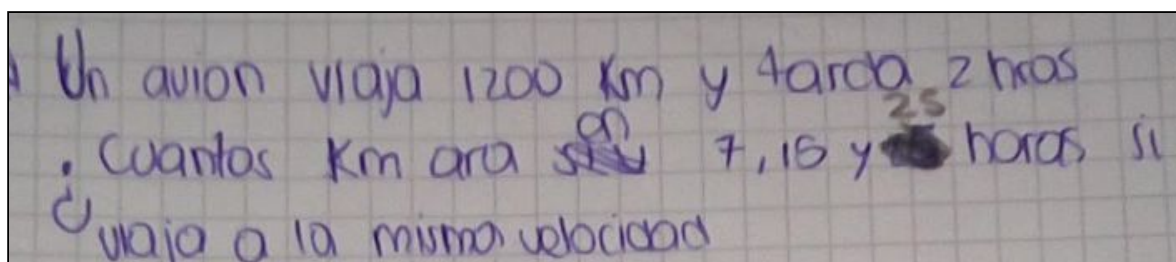 Un avion viaja 1200 Km y tarda 2 hras
¿Cuantos Km ara en 7, 15 y 25 horas si
viaja a la misma velocidad